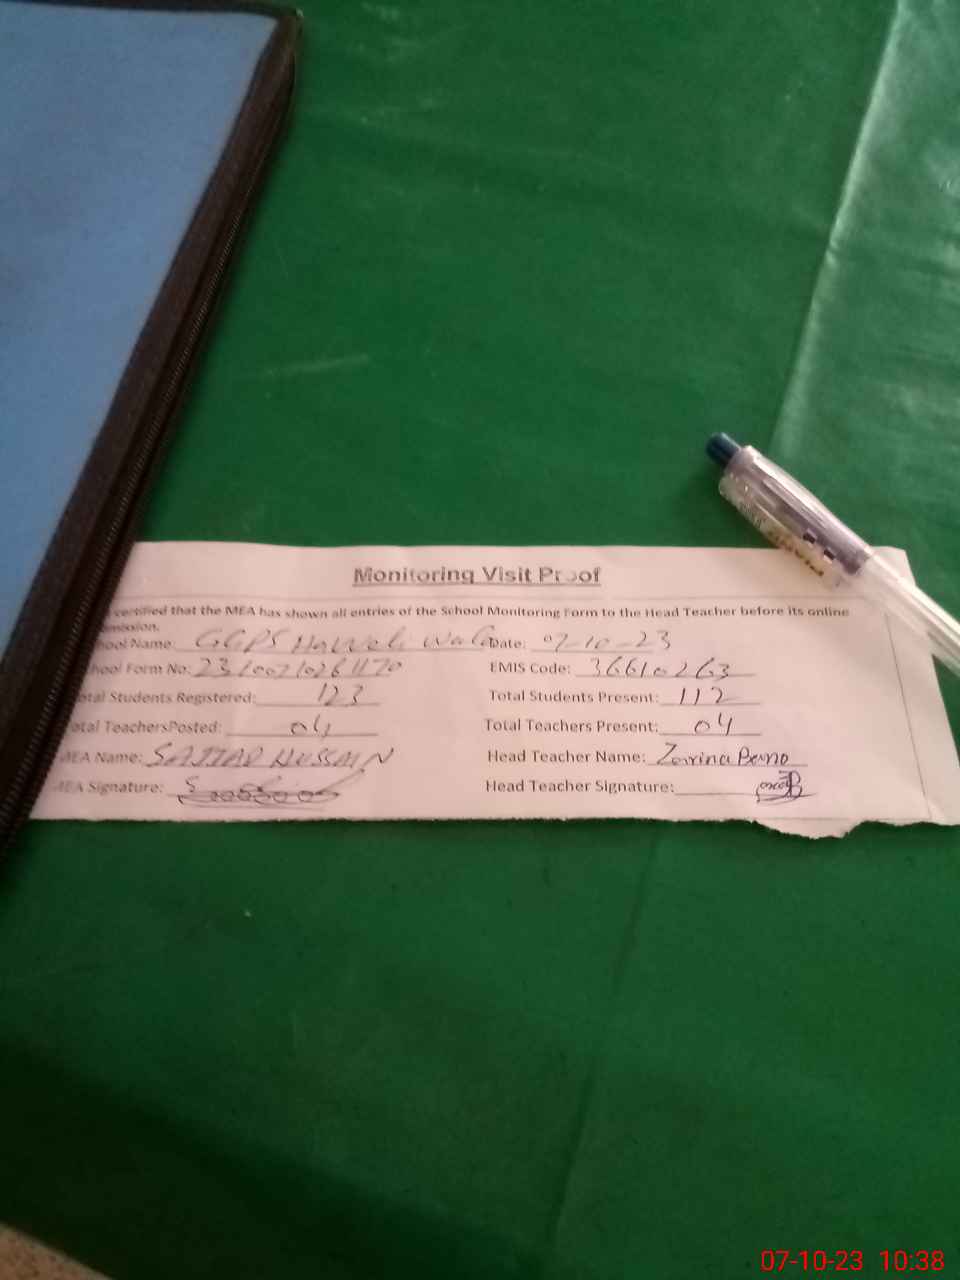 Monitoring Visit Proof
certified that the MEA has shown all entries of the School Monitoring Form to the Head Teacher before its online
mission.
hool Name: GGPS Haweli Wala Date: 07-10-23
hool Form No: EMIS Code: 36610263
otal Students Registered: 123 Total Students Present: 112
otal TeachersPosted: 04 Total Teachers Present: 04
MEA Name: SAJJAD HUSSAIN Head Teacher Name: Zarina Bano
MEA Signature: Head Teacher Signature:
07-10-23 10:38